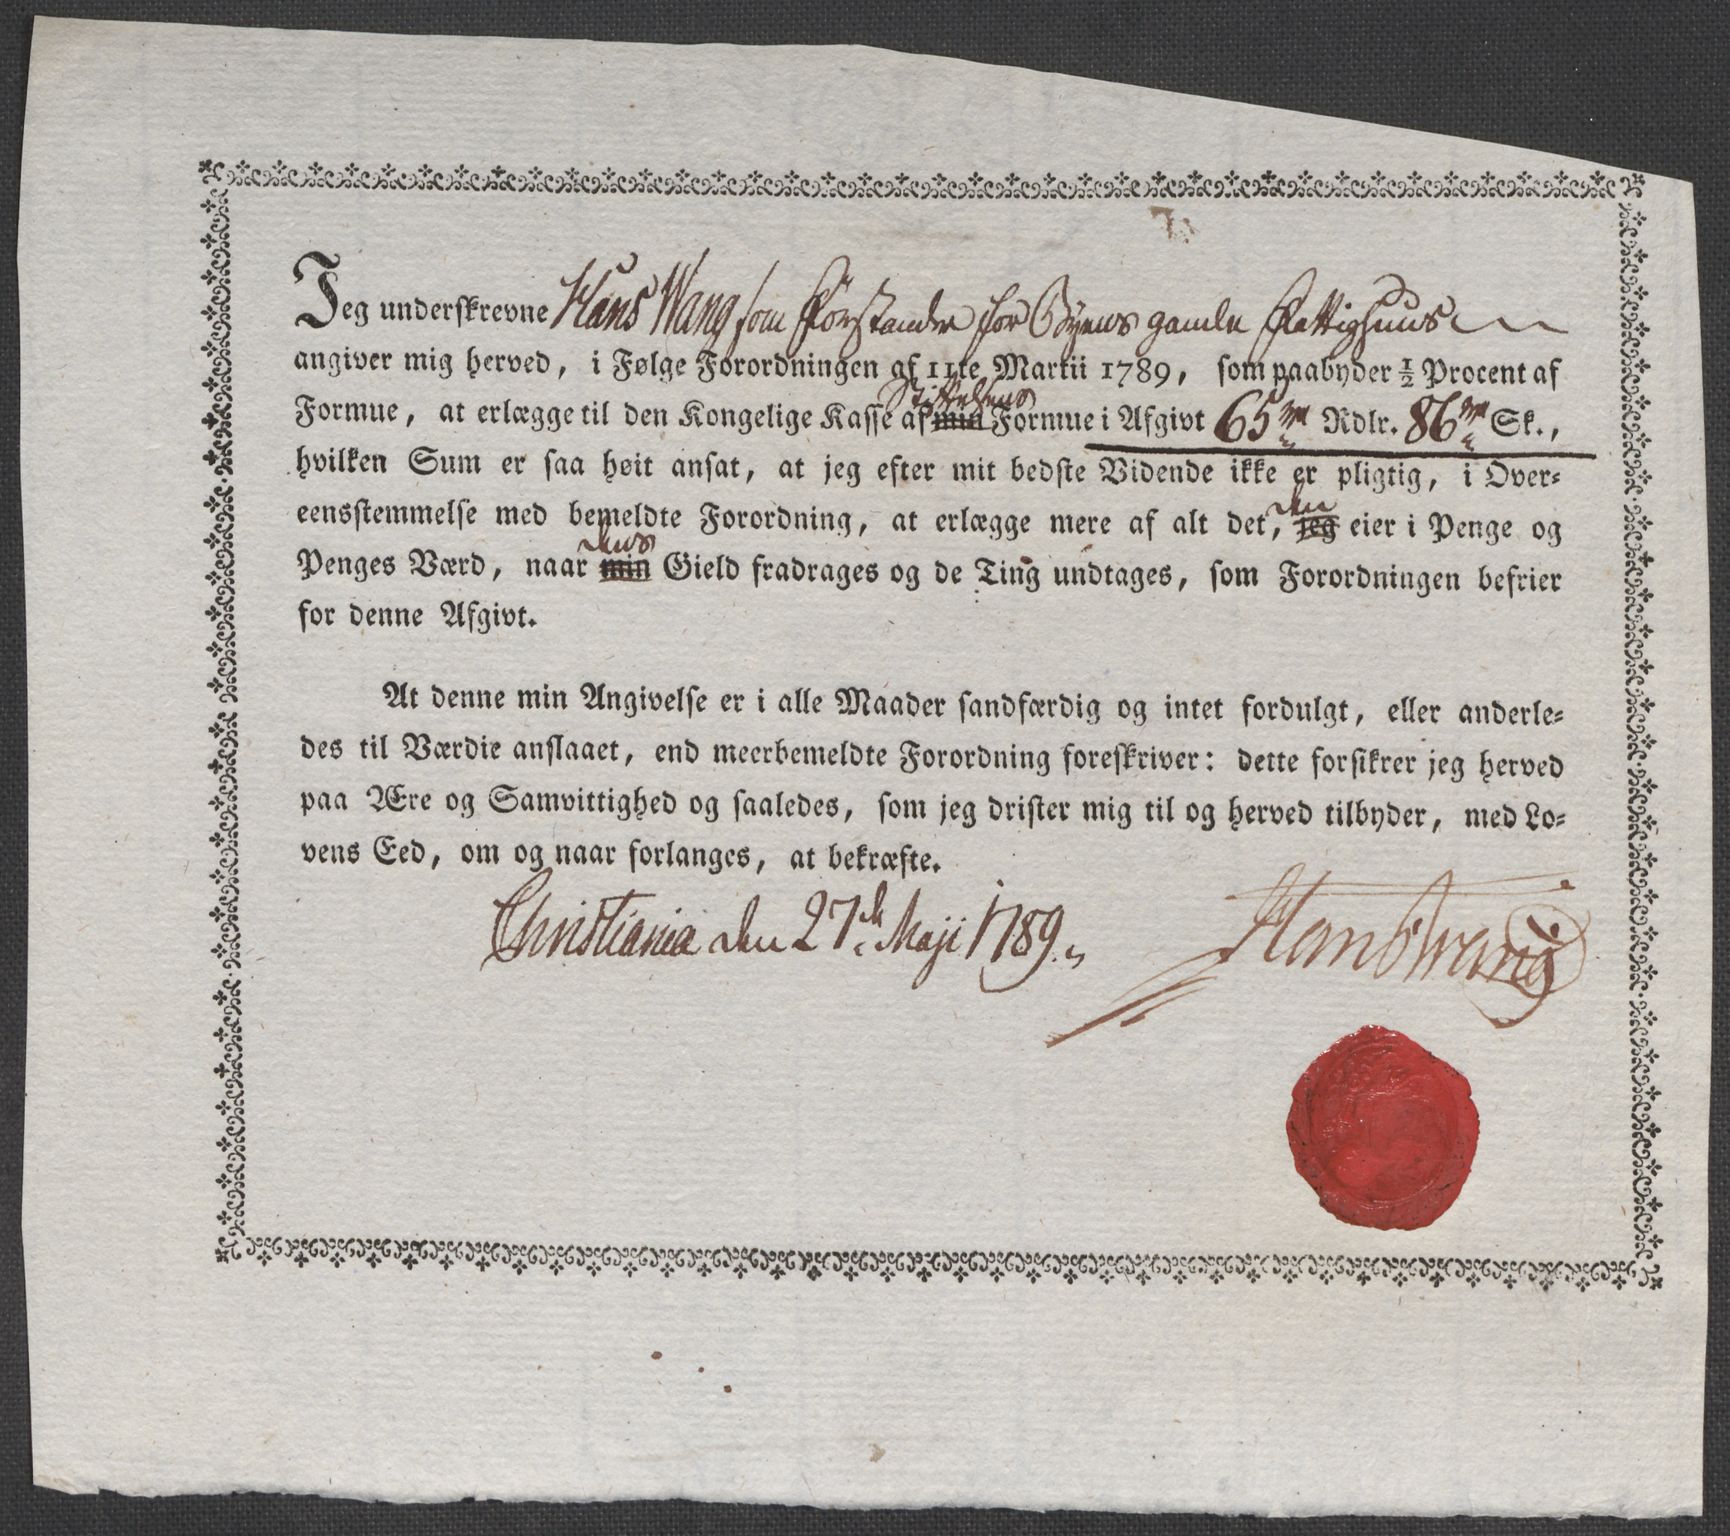 Jeg underskrevne Hans Wang som Forstander for Byens gamle Fattighuus
angiver mig herved, i Følge Forordningen af 11te Martii 1789, som paabyder ½ Procent af
Stiftelsens
Formue, at erlægge til den Kongelige Kasse af min Formue i Afgivt 65 Rdlr. 86 Sk.,
hvilken Sum er saa høit ansat, at jeg efter mit bedste Vidende ikke er pligtig, i Over=
den
eensstemmelse med bemeldte Forordning, at erlægge mere af alt det, jeg eier i Penge og
dens
Penges Værd, naar min Gield fradrages og de Ting undtages, som Forordningen befrier
for denne Afgivt.
At denne min Angivelse er i alle Maader sandfærdig og intet fordulgt, eller anderle=
des til Værdie anslaaet, end meerbemeldte Forordning foreskriver: dette forsikrer jeg herved
paa Ære og Samvittighed og saaledes, som jeg drister mig til og herved tilbyder, med Lo=
vens Eed, om og naar forlanges, at bekræfte.
Christiania den 27de Maji 1789.
Hans Wang